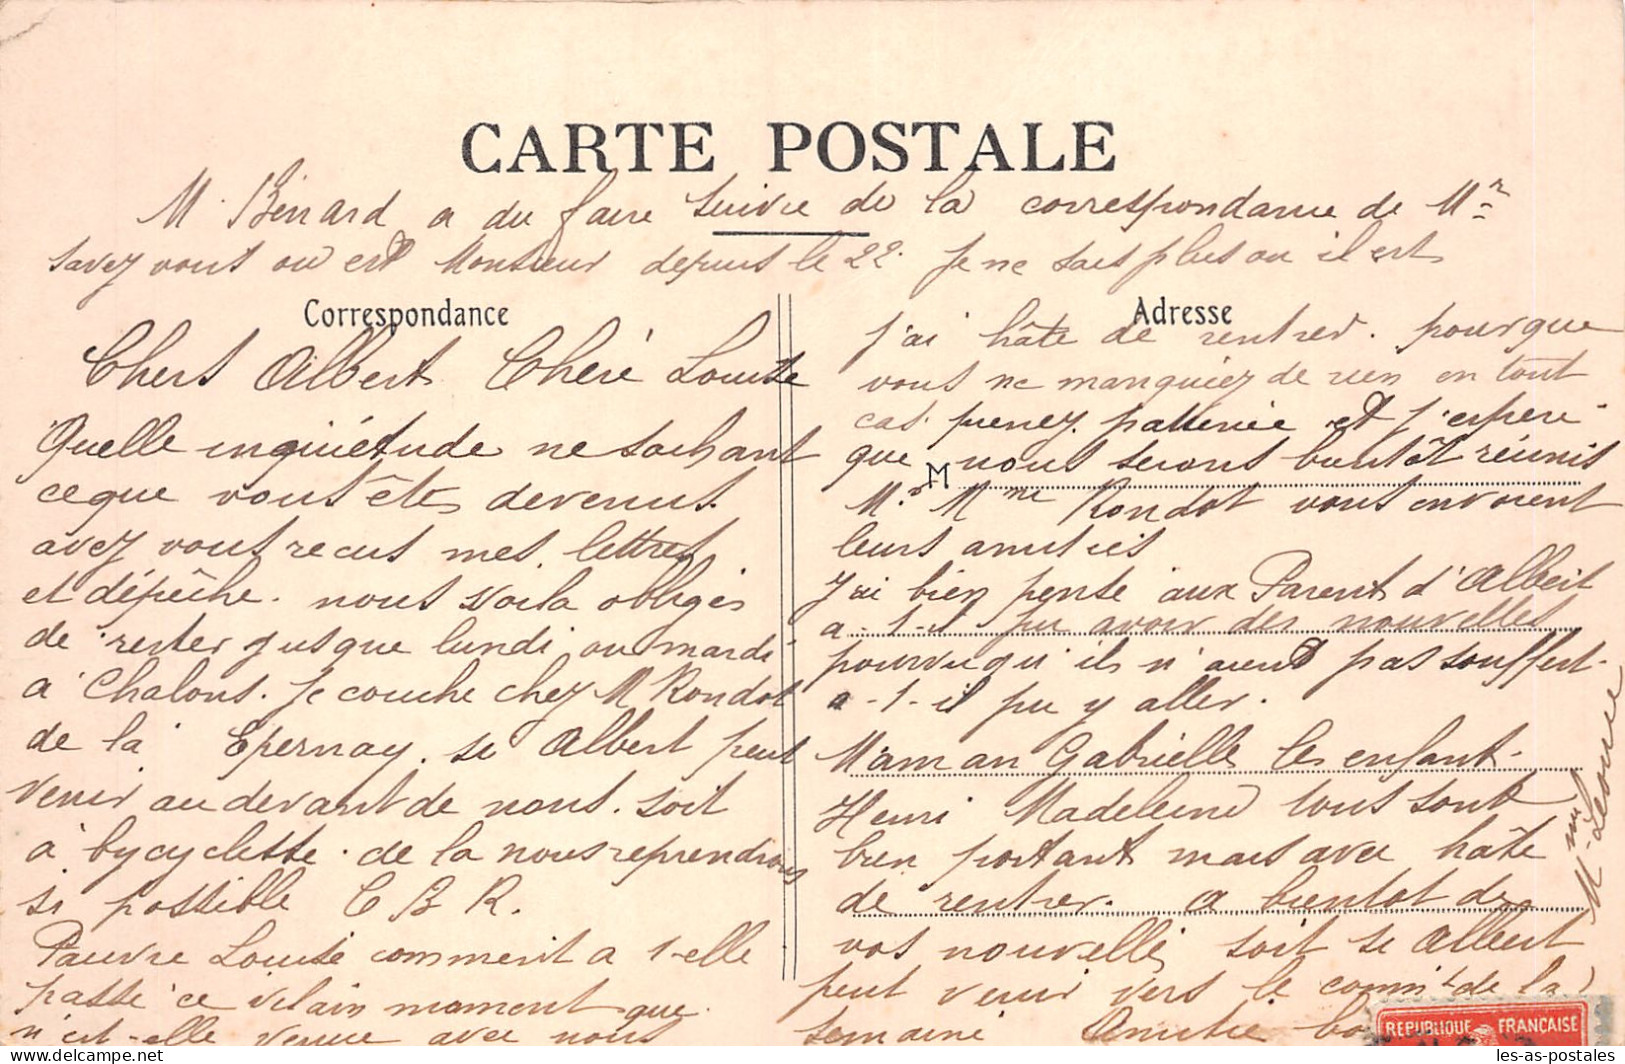 CARTE POSTALE
M. Bénard a du faire suivre de la correspondance de Mr
savez vous ou est Monsieur depuis le 22. Je ne sais plus ou il est
Correspondance
Chers Albert Chére Louise
Quelle inquiétude ne sachant
ce que vous êtes devenus.
avez vous recus mes lettres
et dépêche. nous voila obligés
de rester jusque lundi ou mardi
a Chalons. Je couche chez M Rondot
de la Epernay. si Albert peut
venir au devant de nous. soit
à bycyclette. de la nous reprendrons
si possible C B R.
Pauvre Louise comment a t-elle
passé ce vilain moment que
n'est-elle venue avec nous
Adresse
j'ai hâte de rentrer. pourque
vous ne manquiez de rien en tout
cas. prenez patience et j'espere
que nous serons bientôt réunis
M
Mr Mme Rondot vous envoient
leurs amitiés
J'ai bien pensé aux Parents d'Albert
a-t-il pu avoir des nouvelles
pourvu qu'ils n'aient pas souffert.
a-t-il pu y aller.
Maman Gabrielle les enfants
Henri Madeleine tous sont
bien portant mais avec hâte
de rentrer. a bientot de
vos nouvelles soit si Albert
peut venir vers le commt de la
semaine Amitié
Mme Leonie
REPUBLIQUE FRANÇAISE
les-as-postales